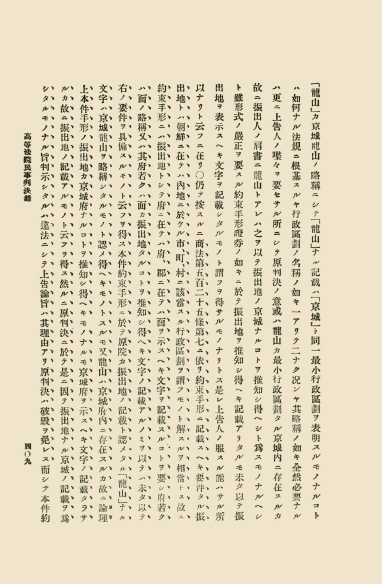 「龍山」カ京城龍山ノ略稱ニシテ「龍山」ナル記載ハ「京城」ト同一最小行政區劃ヲ表明スルモノナルコト
ハ如何ナル法規ニ根基スルヤ行政區劃ノ名稱ノ如キ一アリテ二ナク況シヤ其略稱ノ如キ全然必要ナル
ハ更ニ上告人ノ喋々ヲ要セサル所ニシテ原判決ノ意或ハ龍山カ最小行政區劃タル京城内ニ存在スルカ
故ニ振出人ノ肩書ニ龍山トアレハ之ヲ以テ振出地ノ京城ナルコトヲ推知シ得ヘシト爲スモノナルヘシ
ト雖形式ノ嚴正ヲ要スル約束手形證券ノ如キニ於テ振出地ヲ推知シ得ヘキ記載アリタルモ未タ以テ振
出地ヲ表示スヘキ文字ヲ記載シタルモノト謂フヲ得サルモノナリトス是レ上告人ノ服スル能ハサル所
以ナリト云フニ在リ〇仍テ按スルニ商法第五百二十五條第七ニ依リ約束手形ニ記載スヘキ要件タル振
出地トハ朝鮮ニ在テハ内地ニ於ケル市、町、村ニ該當スル行政區劃ヲ謂フモノト解スルヲ相當トス故ニ
約束手形ニハ振出地トシテ府ニ在テハ府、郡ニ在テハ面ヲ示スヘキ文字ヲ記載スルコトヲ要シ府若ク
ハ面ノ略稱又ハ其府若クハ面カ振出地タルコトヲ推知シ得ヘキ文字ノ記載アルノミヲ以テハ未タ以テ
右ノ要件ヲ具備スルモノト云フヲ得ス本件約束手形ニ於テ原院カ振出地ノ記載ト認メタル「龍山」ナル
文字ハ京城龍山ヲ略稱シタルモノト認メ得ヘキモノトスルモ又龍山ハ京城府内ニ存在スルカ故ニ論理
上本件手形ノ振出地カ京城府ナルコトヲ推知シ得ヘキモノナルモ京城府ヲ示スヘキ文字ノ記載タラサ
ルカ故ニ振出地ノ記載アルモノト云フヲ得ス然ルニ原判決ニ於テ是ニ因テ振出地ナル京城ノ記載ヲ爲
シタルモノナル旨判示シタルハ違法ニシテ上告論旨ハ其理由アリ原判決ハ破毀ヲ免レス而シテ本件約
高等法院民事判決錄
四〇九